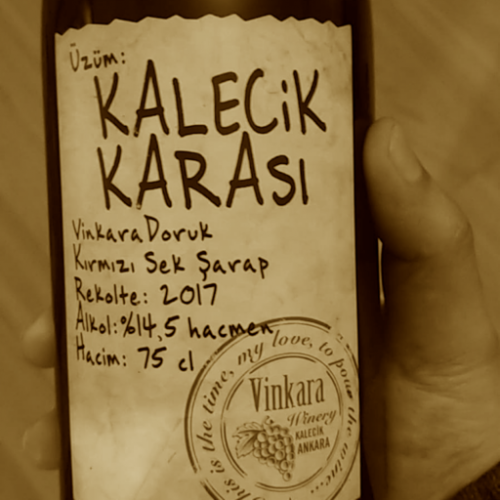 Üzüm:
KALECiK
KARASI
Vinkara Doruk
Kırmızı Sek Şarap
Rekolte: 2017
Alkol: %14,5 hacmen
Hacim: 75 cl
this is the time, my love, to pour the wine...
Vinkara
Winery
KALECİK
ANKARA